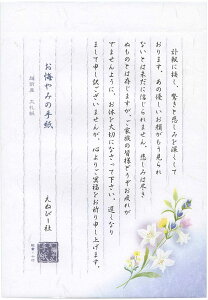 訃報に接し、驚きと悲しみを深くして
おります。あの優しいお顔がもう見られ
ないとは未だに信じられません。悲しみは尽き
ぬものとは存じますが、ご家族の皆様どうぞお疲れが
でませんように、お体を大切になさって下さい。遅くなり
まして申し訳ございませんが、心よりご冥福をお祈り申し上げます。
お悔やみの手紙
越前産 大礼紙
えぬびー社